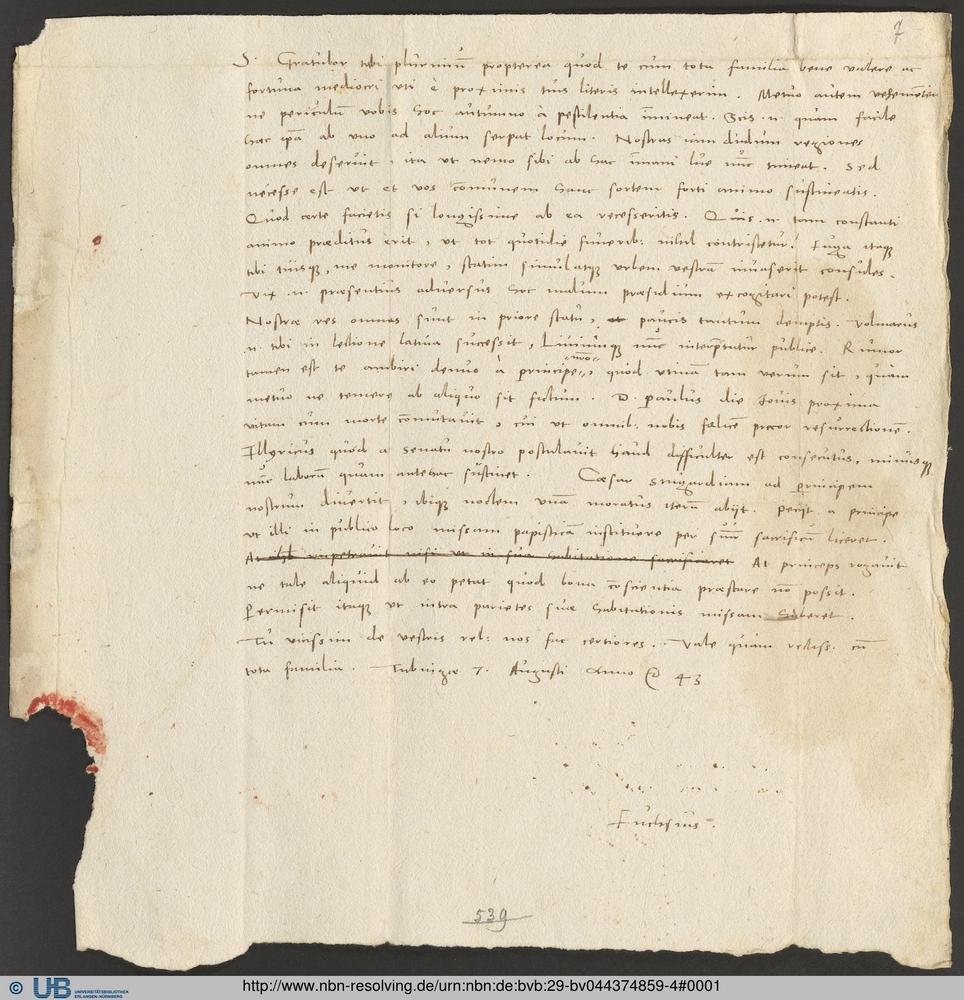 7
S. Gratulor tibi plurimũ propterea quod te cum tota familia bene valere ac
fortuna mediocri uti è proximis tuis literis intellexerim. Metuo autem vehementer
ne periculũ vobis hoc autumno à pestilentia ĩmineat. Scis .n. quam facile
hæc ipsa ab uno ad alium serpat locum. Nostras iam dudum regiones
omnes deseruit, ita ut nemo sibi ab hac ĩmani lue nũc timeat. Sed
necesse est ut et vos cõmunem hanc sortem forti animo sustineatis.
Quod certe facietis si longissime ab ea recesseritis. Quis .n. tam constanti
animo præditus erit, ut tot quotidie funerib: nihil contristetur? Fuga itaq
tibi tuisq, me monitore, statim simulatq urbem vestrã invaserit consules.
Vix .n. præsentius adversus hoc malum præsidium excogitari potest.
Nostræ res omnes sunt in priore statu, paucis tantum demptis. Volmarus
.n. tibi in lectione latina successit, Liviumq nũc interptatur publice. Rumor
tamen est te ambiri denuo à principe, quod utinam tam verum sit, quam
metuo ne temere ab aliquo sit fictum. D. Paulus die Iovis proxima
vitam cum morte cõmutavit, cui ut omnib: nobis fælicẽ precor resurrectionẽ.
Illyricus quod a senatu nostro postulavit haud difficulter est consecutus, minusq
nũc laborũ quam antehac sustinet. Cæsar Stugardiam ad principem
nostrum divertit, ibiq noctem unã moratus iterũ abijt. Petijt a principe
ut illi in publico loco missam papisticã instituere per suũ sacrificũ liceret.
nisi ut in sua habitatione sacrificaret At princeps rogavit
ne tale aliquid ab eo petat quod bona cõscientia præstare nõ possit.
Permisit itaque ut intra parietes suæ habitationis missam haberet.
Tu vicissim de vestris reb: nos fac certiores. Vale quam rectiss. cũ
tota familia. Tubingæ 7. Augusti Anno 43
Fuchsius.
539
© UB UNIVERSITÄTSBIBLIOTHEK ERLANGEN-NÜRNBERG http://www.nbn-resolving.de/urn:nbn:de:bvb:29-bv044374859-4#0001